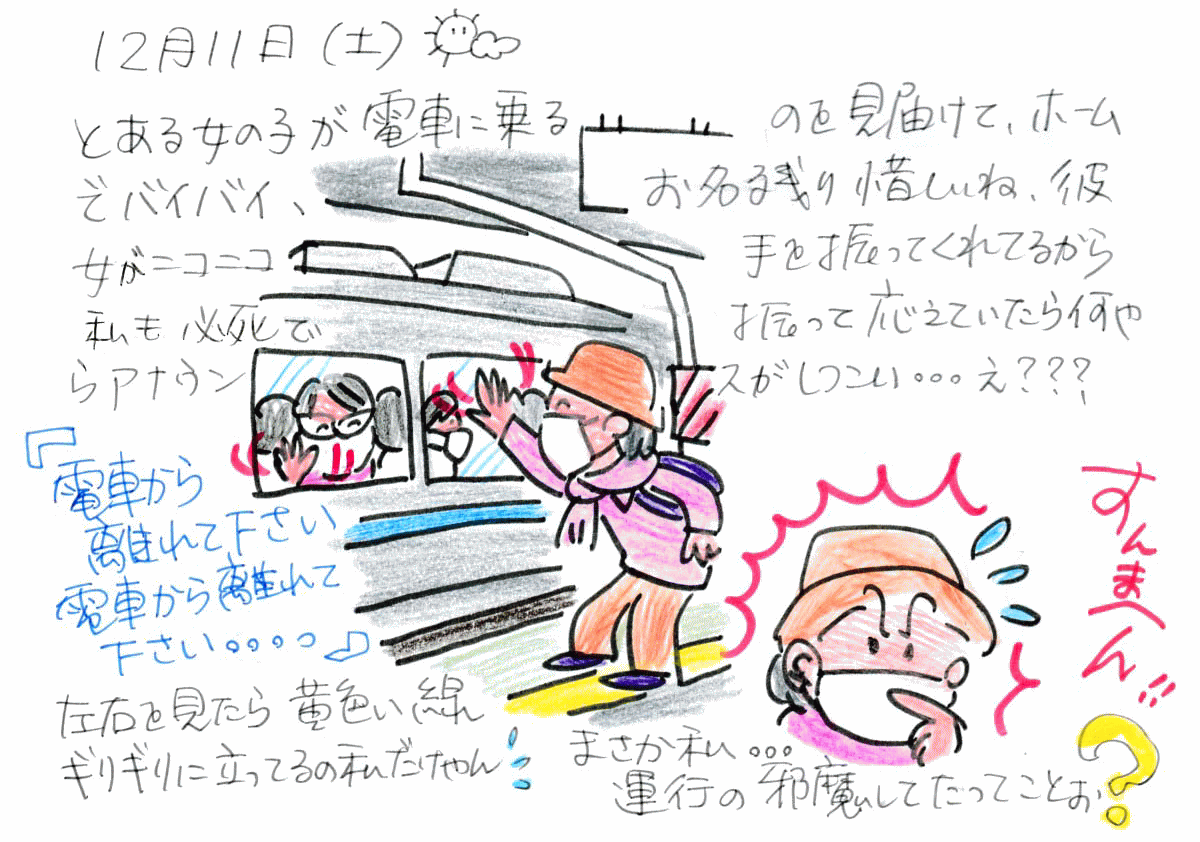 12月11日(土)
とある女の子が電車に乗るのを見届けて、ホーム
でバイバイ、お名残り惜しいね、彼
女がニコニコ手を振ってくれてるから
私も必死で振って応えていたら何や
らアナウンスがしつこい・・・え???
『電車から
離れて下さい
電車から離れて
下さい。。。っ』
すんまへん!!
左右を見たら黄色い線
ギリギリに立ってるの私だけやん
まさか私・・・
運行の邪魔してたってことぉ?